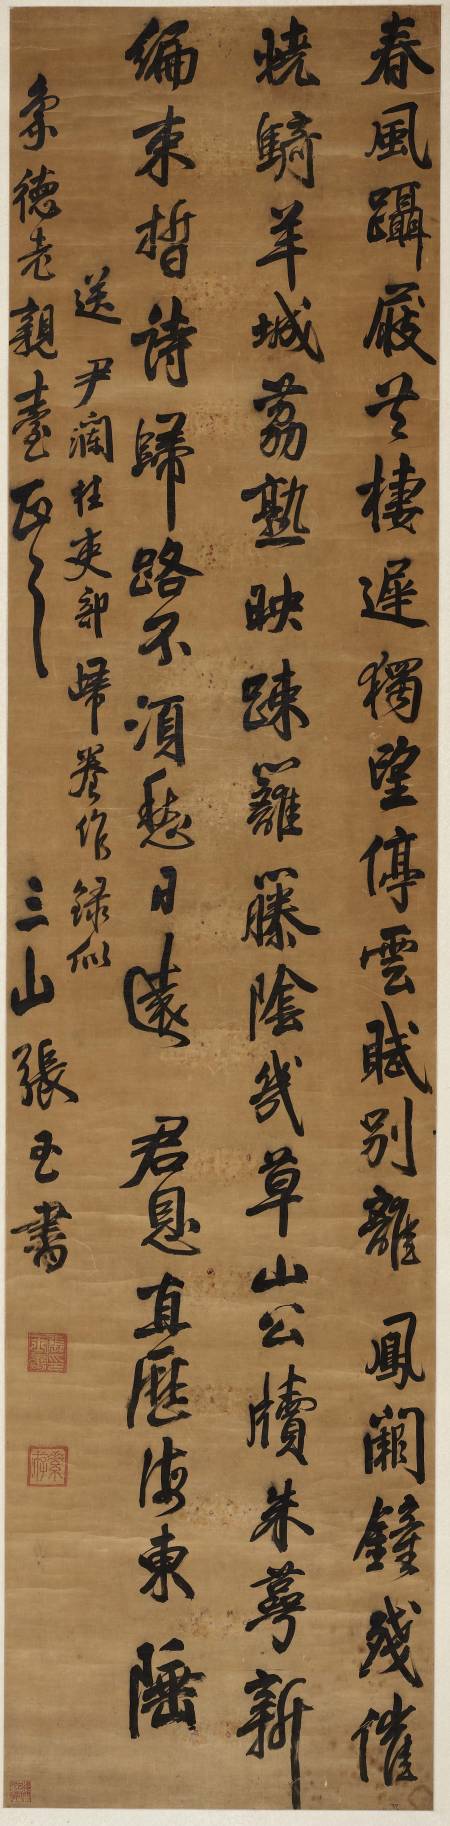 春風躡屐共棲遲獨望停雲賦別離 鳳闕鐘殘催
曉騎羊城荔熟映踈籬藤陰幾草山公牘朱萼新
編束晳詩歸路不須愁日遠 君恩直歷海東陲
送尹瀾柱吏部歸養作録似
象德老親臺政之 三山張玉書
素存